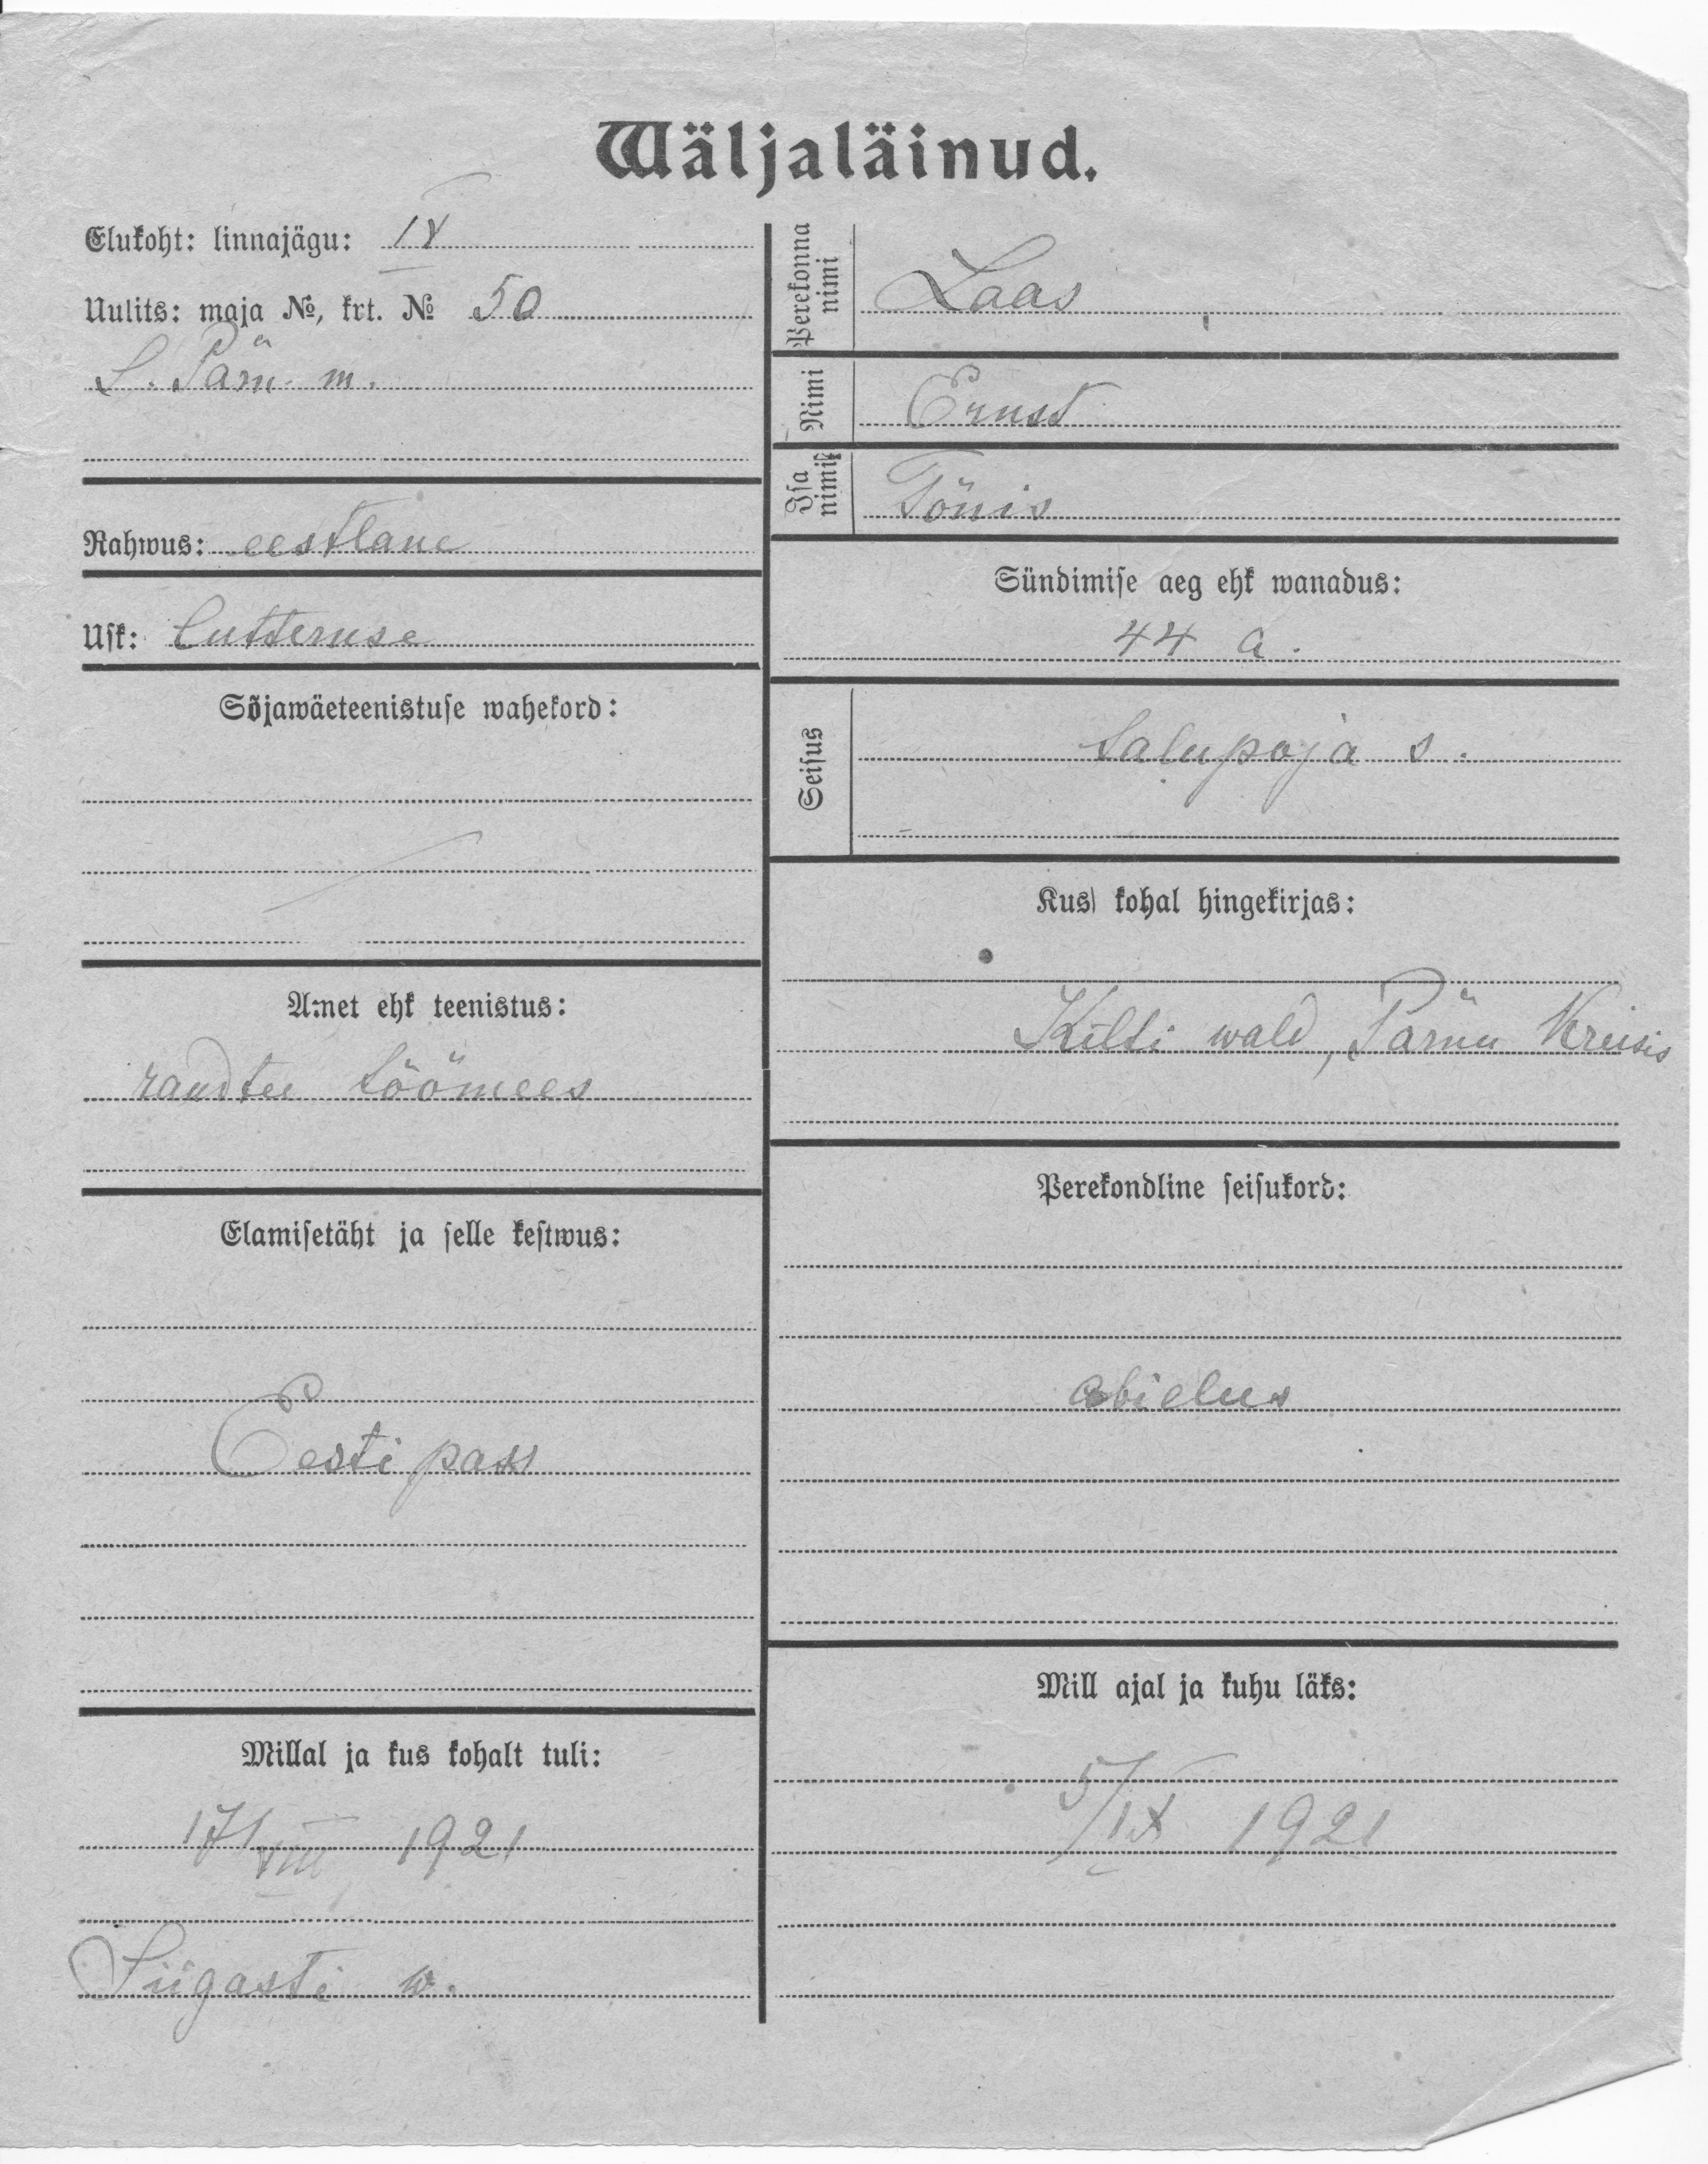 Wäljaläinud.
Elukoht: linnajägu: IV
Uulits: maja №, krt. № 50
S. Pärn. m.
Rahwus: eestlane
Usk: lutteruse
Sõjawäeteenistuse wahekord:
Amet ehk teenistus:
raudtee töömees
Elamisetäht ja selle kestwus:
Eesti pass
Millal ja kus kohalt tuli:
17/VIII 1921
Siigasti w.
Perekonna nimi Laas
Nimi Ernst
Isa nimi Tõnis
Sündimise aeg ehk wanadus:
44 a.
Seisus talupoja s.
Kus kohal hingekirjas:
Kilti wald, Pärnu Kreisis
Perekondline seisukord:
abielus
Mill ajal ja kuhu läks:
5/IX 1921